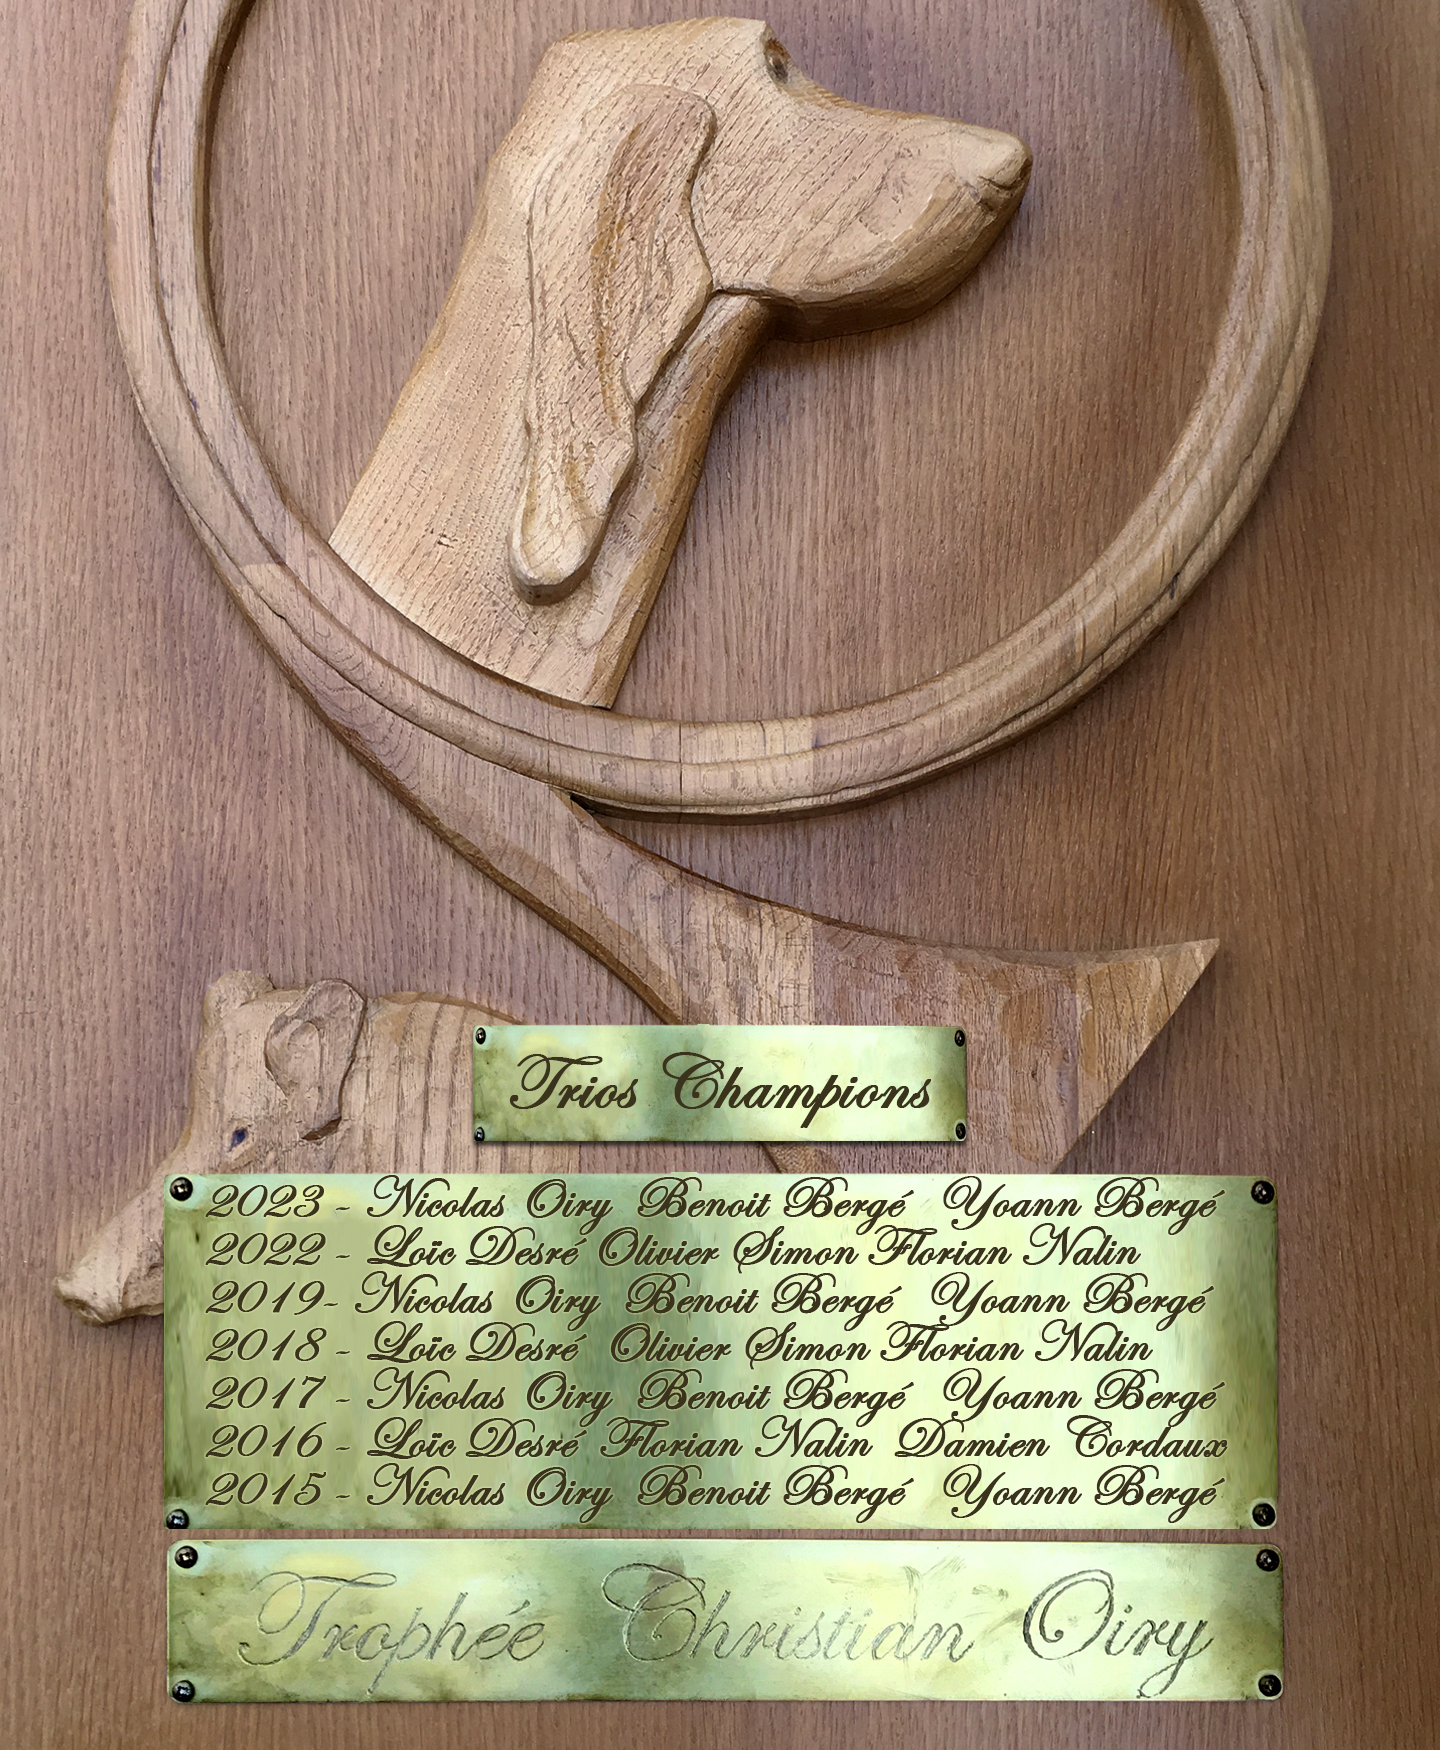 Trios Champions
2023 - Nicolas Oiry Benoit Bergé Yoann Bergé
2022 - Loïc Desré Olivier Simon Florian Nalin
2019- Nicolas Oiry Benoit Bergé Yoann Bergé
2018 - Loïc Desré Olivier Simon Florian Nalin
2017 - Nicolas Oiry Benoit Bergé Yoann Bergé
2016 - Loïc Desré Florian Nalin Damien Cordaux
2015 - Nicolas Oiry Benoit Bergé Yoann Bergé
Trophée Christian Oiry